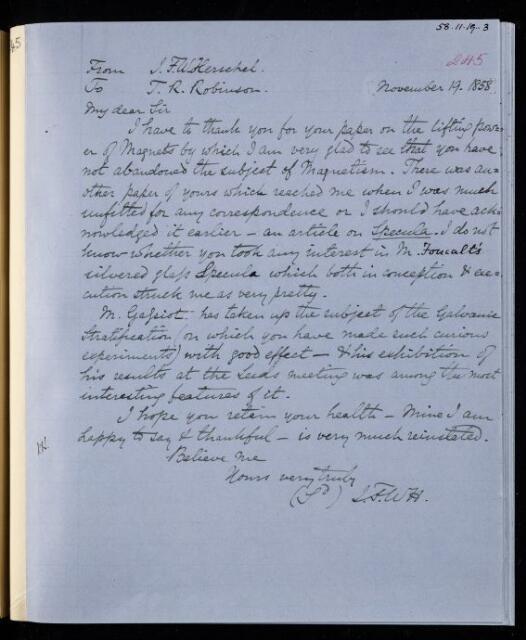 58-11-19-3
245
45
From J.F.W.Herschel.
To T. R. Robinson. November 19. 1858
My dear Sir
I have to thank you for your paper on the lifting pow-
er of Magnets by which I am very glad to see that you have
not abandoned the subject of Magnetism. There was an-
other paper of yours which reached me when I was much
unfitted for any correspondence or I should have ack-
nowledged it earlier – an article on Specula. I do not
know whether you took any interest in M. Foucalt's
silvered glass Specula which both in conception & exe-
cution struck me as very pretty.
M. Gassiot has taken up the subject of the Galvanic
Stratification (on which you have made such curious
experiments) with good effect – & his exhibition of
his results at the Leeds meeting was among the most
interesting features of it.
I hope you retain your health – Mine I am
happy to say & thankful – is very much reinstated.
Believe me
Yours very truly
(Sd) J.F.W H.